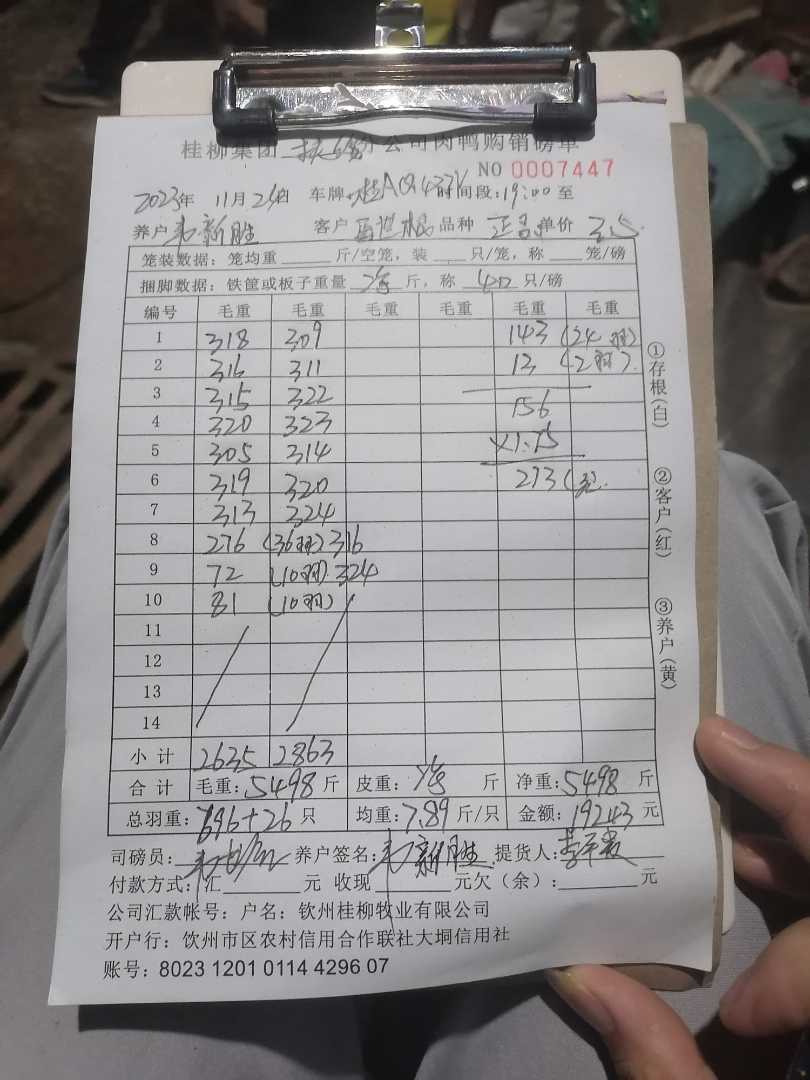 桂柳集团 分公司肉鸭购销磅单
NO 0007447
2023年 11月26日 车牌: 桂A 时间段: 19:00 至
养户 韦新胜 客户 品种 单价 3.5
笼装数据: 笼均重 斤/空笼, 装 只/笼, 称 笼/磅
捆脚数据: 铁筐或板子重量 斤, 称 40 只/磅
编号 毛重 毛重 毛重 毛重 毛重 毛重
1 318 309 143 (24羽)
2 316 311 13 (2羽)
3 315 322
4 320 323 156
5 305 314 ×1.75
6 319 320 273 (元
7 313 324
8 276 (36羽) 316
9 72 (10羽) 324
10 81 (10羽)
11
12
13
14
小计 2635 2863
合计 毛重: 5498 斤 皮重: 斤 净重: 5498 斤
总羽重: 696+26 只 均重: 7.89 斤/只 金额: 19243 元
司磅员: 养户签名: 韦新胜 提货人:
付款方式: 汇 元 收现 元欠(余): 元
公司汇款帐号: 户名: 钦州桂柳牧业有限公司
开户行: 钦州市区农村信用合作联社大垌信用社
账号: 8023 1201 0114 4296 07
①存根(白)
②客户(红)
③养户(黄)